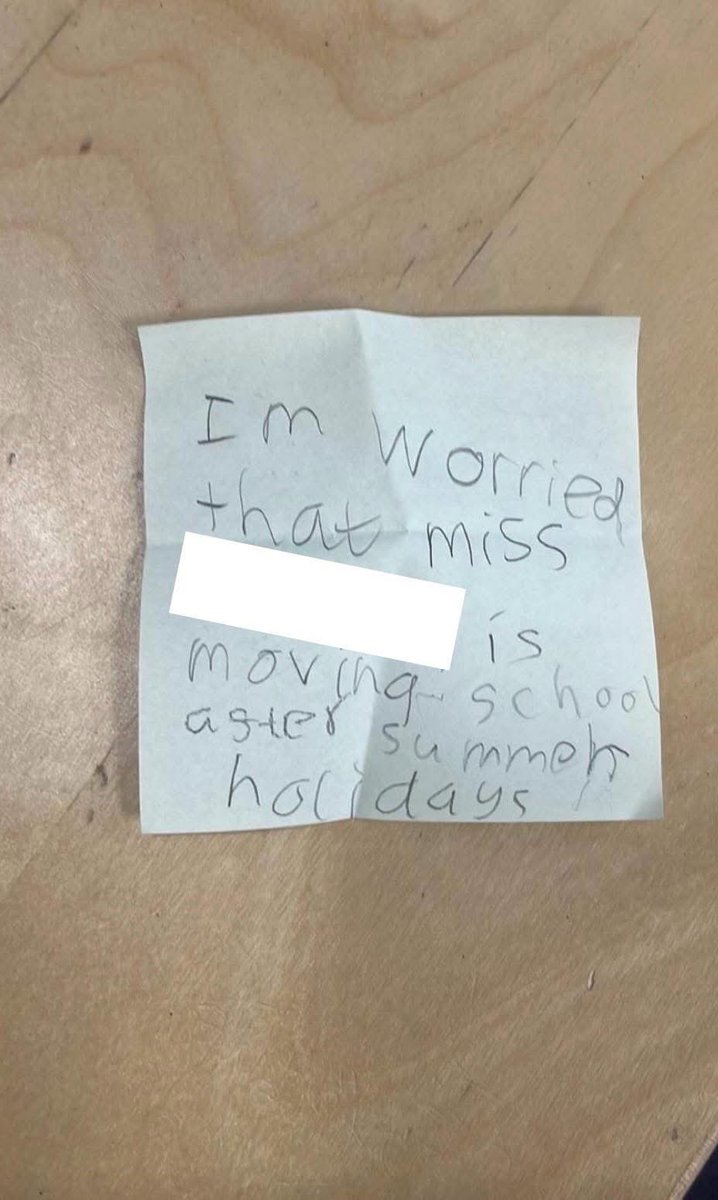 Im worried
that miss
is
moving school
aster summer
holidays